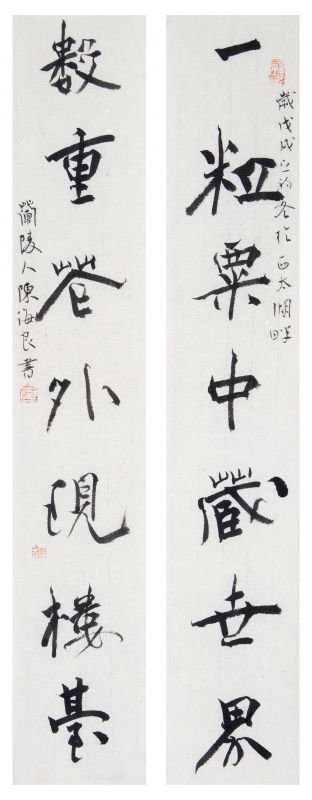 一粒粟中藏世界
歲戊戌之初冬於西太湖畔
數重花外現樓臺
蘭陵人陳海良書